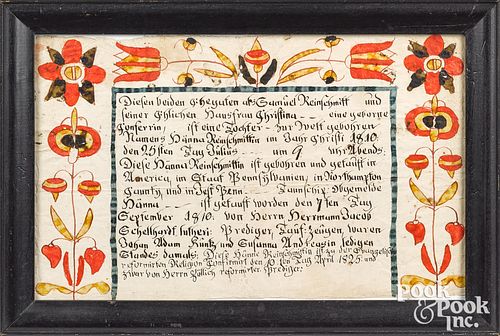 Diesen beiden Ehegaten als Samuel Reinschmitt und
seiner Ehlichen Hausfrau Christina eine geborge
ist eine Tochter zur Welt gebohren
Namens Hanna Reinschmittin im Jahr Christi 1810
den Tag Julius um 9 uhr Abends.
Diese Hanna Reinschmittin ist gebohren und getauft in
Americy, im Staat Pennsylvanien, in Northampton
County, und in West Penn Taunschip, Obgemelde
Hanna ist getauft worden den 7ten Tag
September 1810. von Herrn Herrmann Jacob
Schellhardt lutheri: Prediger, Tauf-zeugen, waren
Johan Adam Küntz und Susanna Andreasin ledigen
Standes damals. Diese Hanna Reinschmittin ist zu der Evangelisch
reformirten Religion Confirmirt den Tag April 1825. und
zwar von Herrn reformirter Prediger.
Pook & Pook Inc.